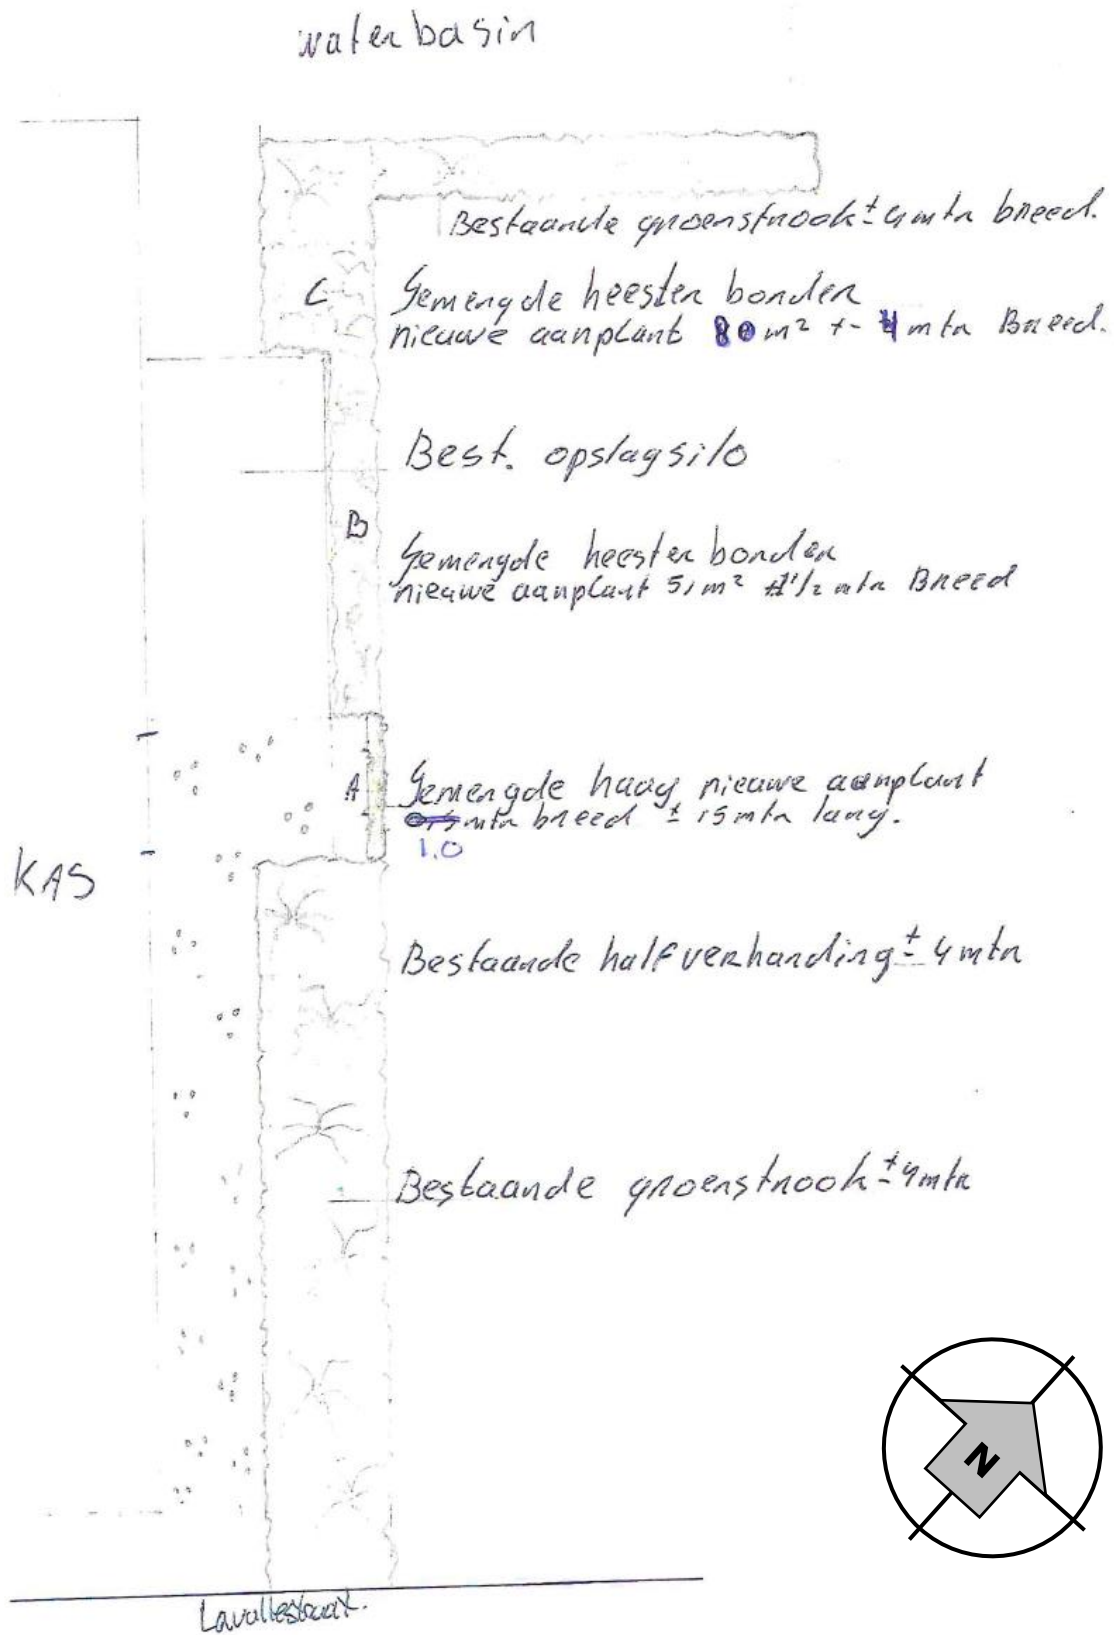 waterbasin
Bestaande groenstrook ± 4 mtr breed.
C
Gemengde heester border
nieuwe aanplant 80 m² +- 4 mtr Breed.
Best. opslagsilo
B
Gemengde heester border
nieuwe aanplant 51 m² ±1½ mtr Breed
A
Gemengde haag nieuwe aanplant
mtr breed ± 15 mtr lang.
1.0
KAS
Bestaande halfverharding ± 4 mtr
Bestaande groenstrook ± 4 mtr
N